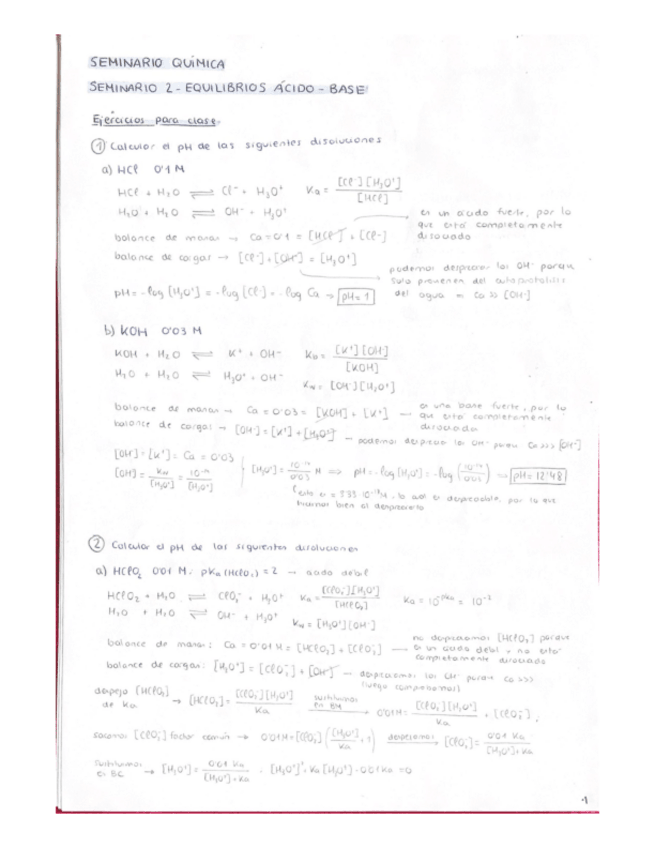 SEMINARIO QUÍMICA
SEMINARIO 2 - EQUILIBRIOS ÁCIDO - BASE
Ejercicios para clase.
① Calcular el pH de las siguientes disoluciones
a) HCl 0'1 M
HCl + H₂O ⇌ Cl⁻ + H₃O⁺ Ka = [Cl⁻][H₃O⁺] / [HCl]
H₂O + H₂O ⇌ OH⁻ + H₃O⁺
es un ácido fuerte, por lo
que está completamente
disociado
balance de masas → Ca = 0'1 = [HCl] + [Cl⁻]
balance de cargas → [Cl⁻] + [OH⁻] = [H₃O⁺]
podemos despreciar los OH⁻ porque
solo provienen del autoprotólisis
del agua Ca >> [OH⁻]
pH = -log [H₃O⁺] = -log [Cl⁻] = -log Ca → pH = 1
b) KOH 0'03 M
KOH + H₂O ⇌ K⁺ + OH⁻ = [K⁺][OH⁻] / [KOH]
H₂O + H₂O ⇌ H₃O⁺ + OH⁻ Kw = [OH⁻][H₃O⁺]
balance de masas → Ca = 0'03 = [KOH] + [K⁺] — es una base fuerte, por lo
que está completamente
disociada
balance de cargas → [OH⁻] = [K⁺] + [H₃O⁺] — podemos despreciar los OH⁻ porque Ca >>> [OH⁻]
[OH⁻] = [K⁺] = Ca = 0'03
[OH⁻] = Kw / [H₃O⁺] = 10⁻¹⁴ / [H₃O⁺] [H₃O⁺] = 10⁻¹⁴ / 0'03 M ⇒ pH = -log [H₃O⁺] = -log (10⁻¹⁴ / 0'03) → pH = 12'48
(esto es 3'33·10⁻¹³ M, lo cual es despreciable, por lo que
hicimos bien al despreciarlo
② Calcular el pH de las siguientes disoluciones
a) HClO₂ 0'01 M. pKa (HClO₂) = 2 → ácido débil
HClO₂ + H₂O ⇌ ClO₂⁻ + H₃O⁺ Ka = [ClO₂⁻][H₃O⁺] / [HClO₂] Ka = 10⁻ᵖᴷᵃ = 10⁻²
H₂O + H₂O ⇌ OH⁻ + H₃O⁺ Kw = [H₃O⁺][OH⁻]
balance de masas: Ca = 0'01 M = [HClO₂] + [ClO₂⁻] — no despreciamos [HClO₂] porque
es un ácido débil y no está
completamente disociado
balance de cargas: [H₃O⁺] = [ClO₂⁻] + [OH⁻] — despreciamos los OH⁻ porque Ca >>>
(luego comprobamos)
despejo [HClO₂]
de Ka → [HClO₂] = [ClO₂⁻][H₃O⁺] / Ka sustituimos en BM → 0'01 M = [ClO₂⁻][H₃O⁺] / Ka + [ClO₂⁻];
sacamos [ClO₂⁻] factor común → 0'01 M = [ClO₂⁻] ([H₃O⁺] / Ka + 1) despejamos → [ClO₂⁻] = 0'01 Ka / [H₃O⁺] + Ka
sustituimos
en BC → [H₃O⁺] = 0'01 Ka / [H₃O⁺] + Ka [H₃O⁺]² + Ka [H₃O⁺] - 0'01 Ka = 0
1